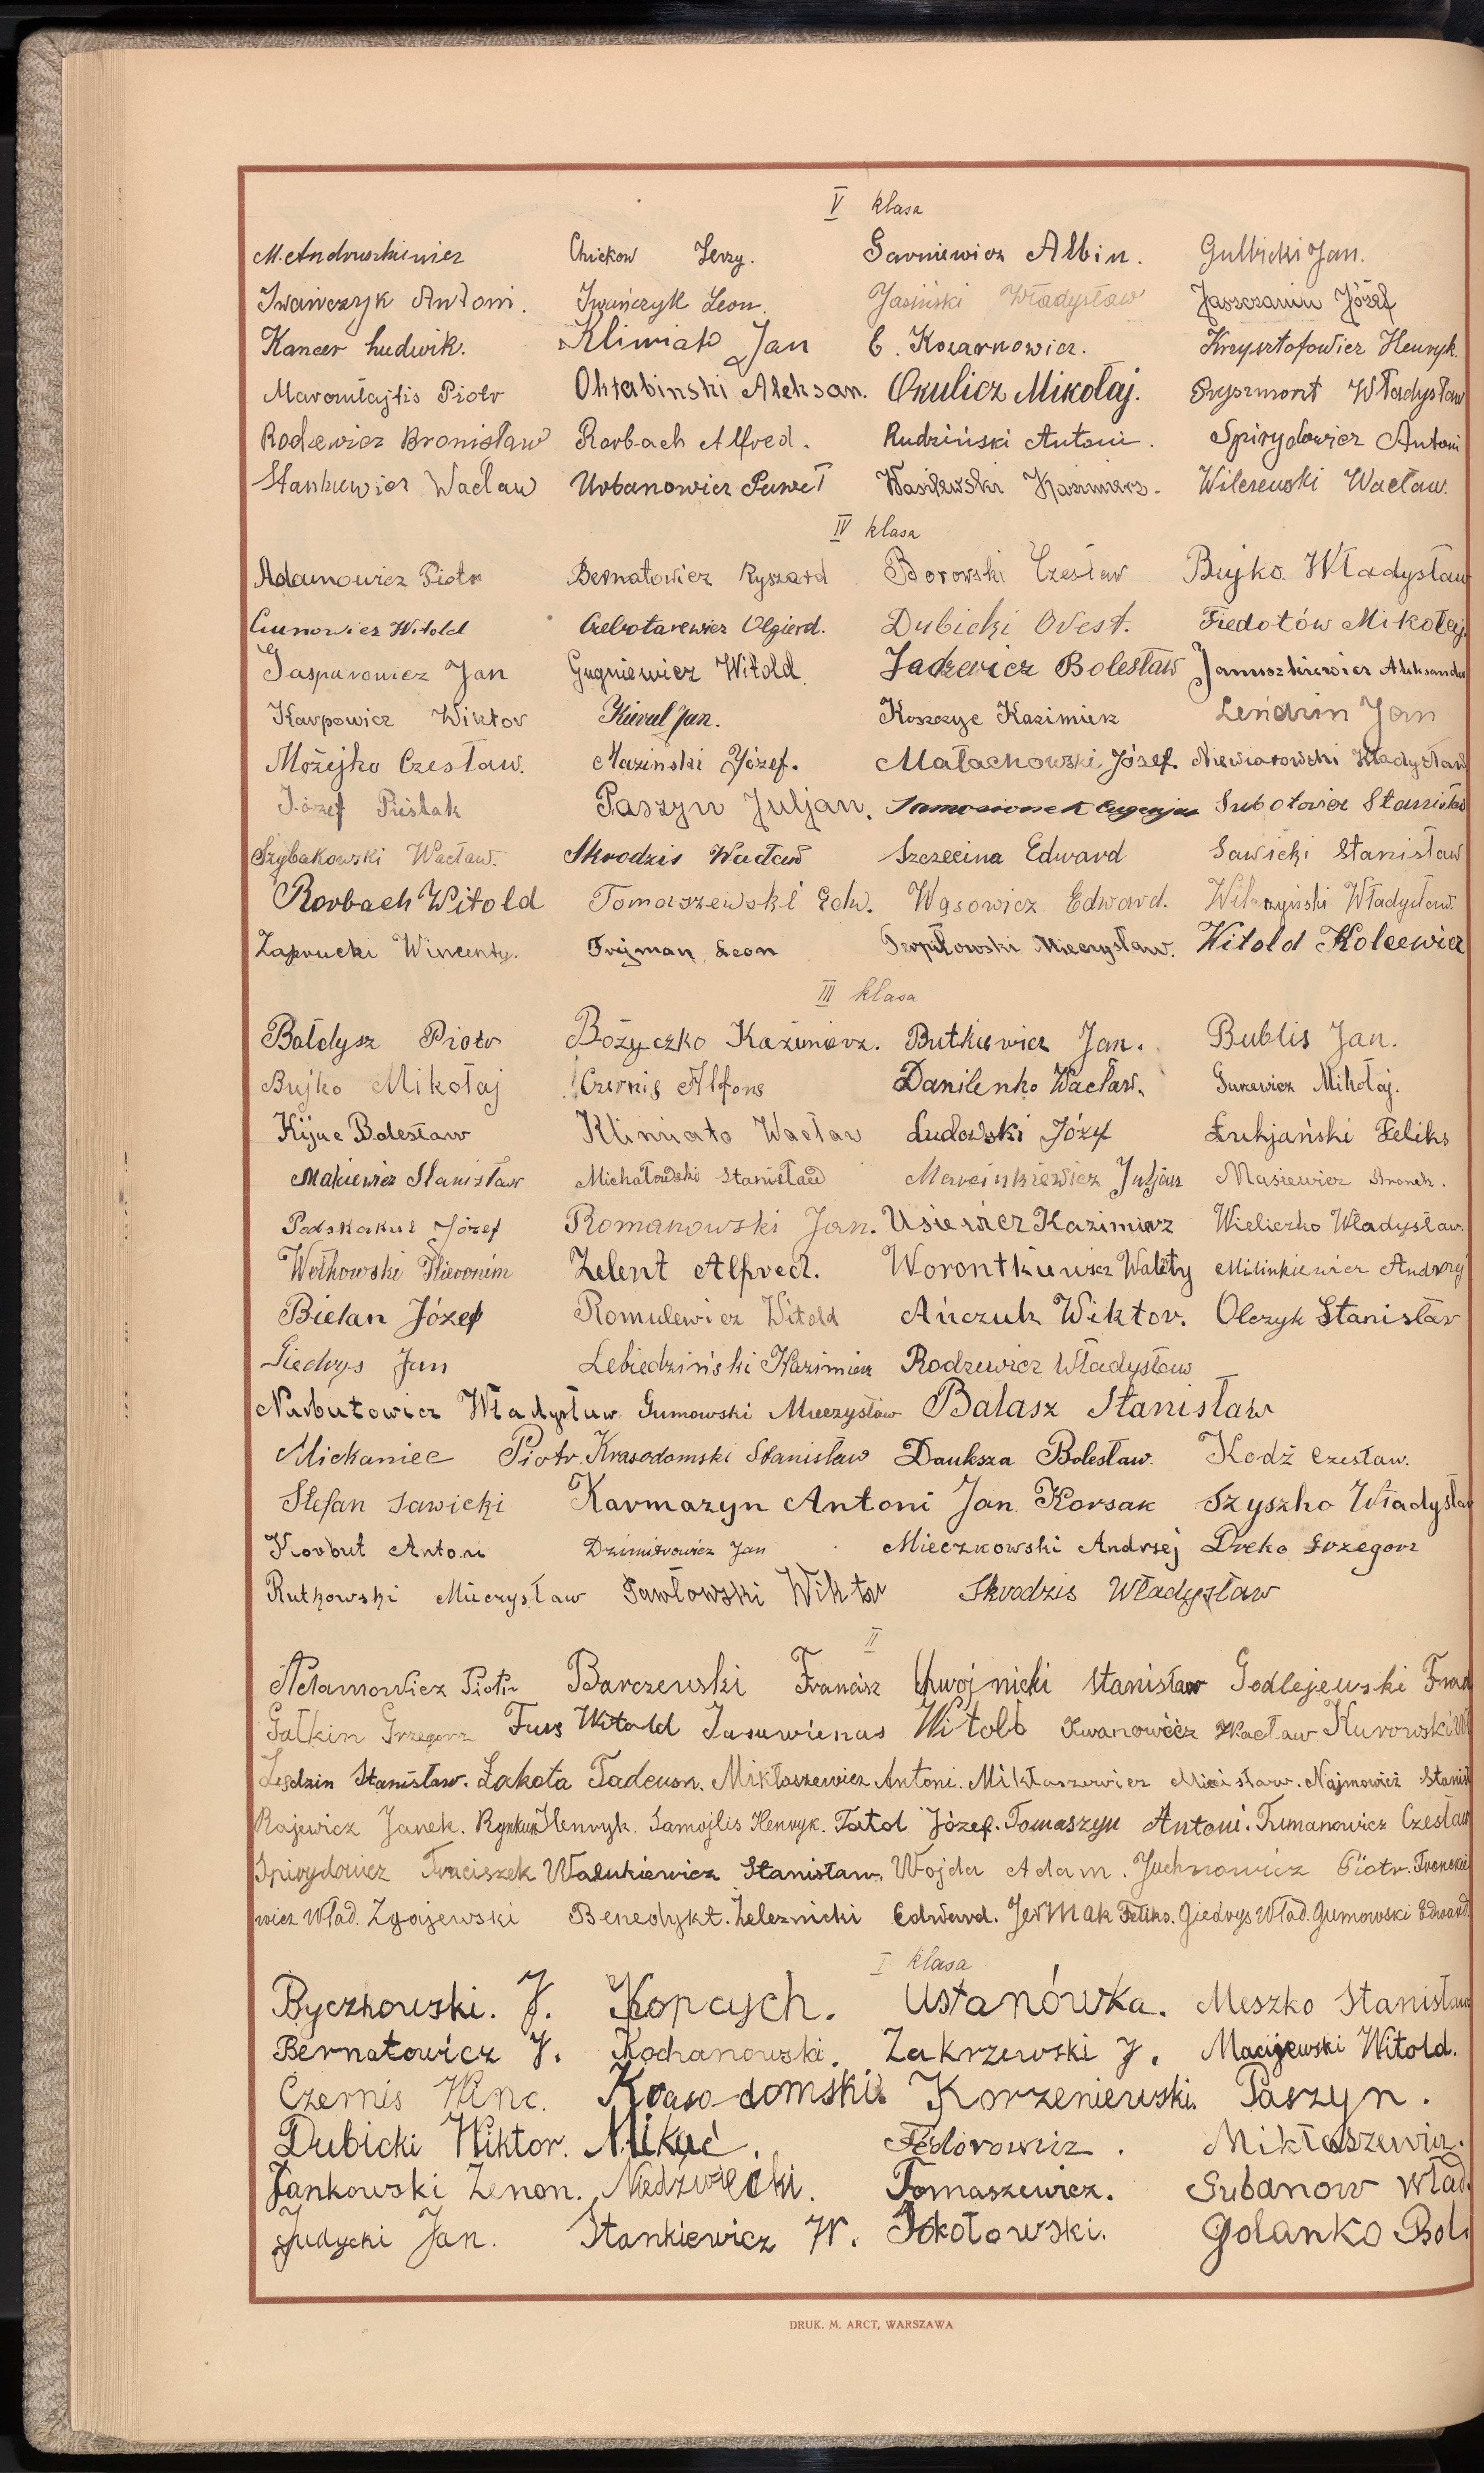 V klasa
M. Andruszkiewicz Chickow Jerzy. Sarniewicz Albin. Gulbicki Jan.
Iwańczyk Antoni. Iwańczyk Leon. Jasiński Władysław Jaszczanin Józef
Kancer Ludwik. Klimiato Jan E. Kozarnowicz. Krzysztofowicz Henryk.
Marcwłajtis Piotr Oktabinski Aleksan. Okulicz Mikołaj. Pryszmont Władysław
Rodzewicz Bronisław Rorbach Alfred. Rudziński Antoni. Spirydowicz Antoni
Stankiewicz Wacław Urbanowicz Paweł Wasilewski Kazimierz. Wilczewski Wacław.
IV klasa
Adamowicz Piotr Bernatowicz Ryszard Borowski Czesław Bujko Władysław
Cunowicz Witold Czebotarewicz Olgierd. Dubicki Orest. Fiedotów Mikołaj.
Gasparowicz Jan Gugniewicz Witold. Jadzewicz Bolesław Januszkiewicz Aleksander
Karpowicz Wiktor Kiwul Jan. Koszczyc Kazimierz Lendzin Jan
Możejko Czesław. Mazinski Józef. Małachowski Józef. Niewiarowski Władysław
Józef Pieślak Paszyn Juljan. Samosionek Eugenjusz Subotowicz Stanisław
Szybakowski Wacław. Skrodzis Wacław Szczecina Edward Sawicki Stanisław
Rorbach Witold Tomaszewski Edw. Wąsowicz Edward. Wilczyński Władysław.
Zaprucki Wincenty. Frejman Leon Terpiłowski Mieczysław. Witold Kolcewicz
III klasa
Bałdysz Piotr Bożyczko Kazimierz. Butkiewicz Jan. Bublis Jan.
Bujko Mikołaj Czernis Alfons Danilenko Wacław. Gurewicz Mikołaj.
Kijuc Bolesław Klimiato Wacław Ludowski Józef Łukjański Feliks
Makiewicz Stanisław Michałowski Stanisław Marcinkiewicz Juljan Masiewicz Bronek.
Podskakuł Józef Romanowski Jan. Usieńcz Kazimierz Wieliczko Władysław.
Wołkowski Hieronim Zelent Alfred. Worontkiewicz Walety Milinkiewicz Andrzej
Bielan Józef Romulewicz Witold Ańczuk Wiktor. Olczyk Stanisław
Giedrys Jan Lebiedziński Kazimierz Rodzewicz Władysław
Narbutowicz Władysław Gumowski Mieczysław Balasz Stanisław
Mickaniec Piotr Krasodomski Stanisław Dauksza Bolesław. Kodź Czesław.
Stefan Sawicki Karmazyn Antoni Jan Korsak Szyszko Władysław
Korbut Antoni Dzimitrowicz Jan Mieczkowski Andrzej Dreko Grzegorz
Rutkowski Mieczysław Pawłowski Wiktor Skrodzis Władysław
II
Adamowicz Piotr Barczewski Francisz Chwojnicki Stanisław Godlejewski Fran
Gałkin Grzegorz Furs Witold Jasuwienas Witold Iwanowicz Wacław Kurowski Wł
Lendzin Stanisław. Łakota Tadeusz. Mikłaszewicz Antoni. Mikłaszewicz Mieczisław. Najmowicz Stanisł
Rajewicz Janek. Rynkun Henryk. Samojlis Henryk. Tatol Józef. Tomaszyn Antoni. Tumanowicz Czesław
Spirydowicz Franciszek Walukiewicz Stanisław. Wojda Adam. Juchnowicz Piotr. Fronckie
wicz Wład. Zgajewski Benedykt. Żeleznicki Edward. Jermak Feliks. Giedrys Wład. Gumowski Edward.
I klasa
Byczkowski. J. Kopcych. Ustanówka. Meszko Stanisław
Bernatowicz J. Kochanowski. Zakrzewski J. Maciejewski Witold.
Czernis Winc. Krasodomski. Korzeniewski. Paszyn.
Dubicki Wiktor. Mikuć. Fedorowicz. Mikłaszewicz.
Jankowski Zenon. Niedźwiecki. Tomaszewicz. Gubanow Wład.
Judycki Jan. Stankiewicz W. Sokołowski. Golanko Bol.
DRUK. M. ARCT, WARSZAWA